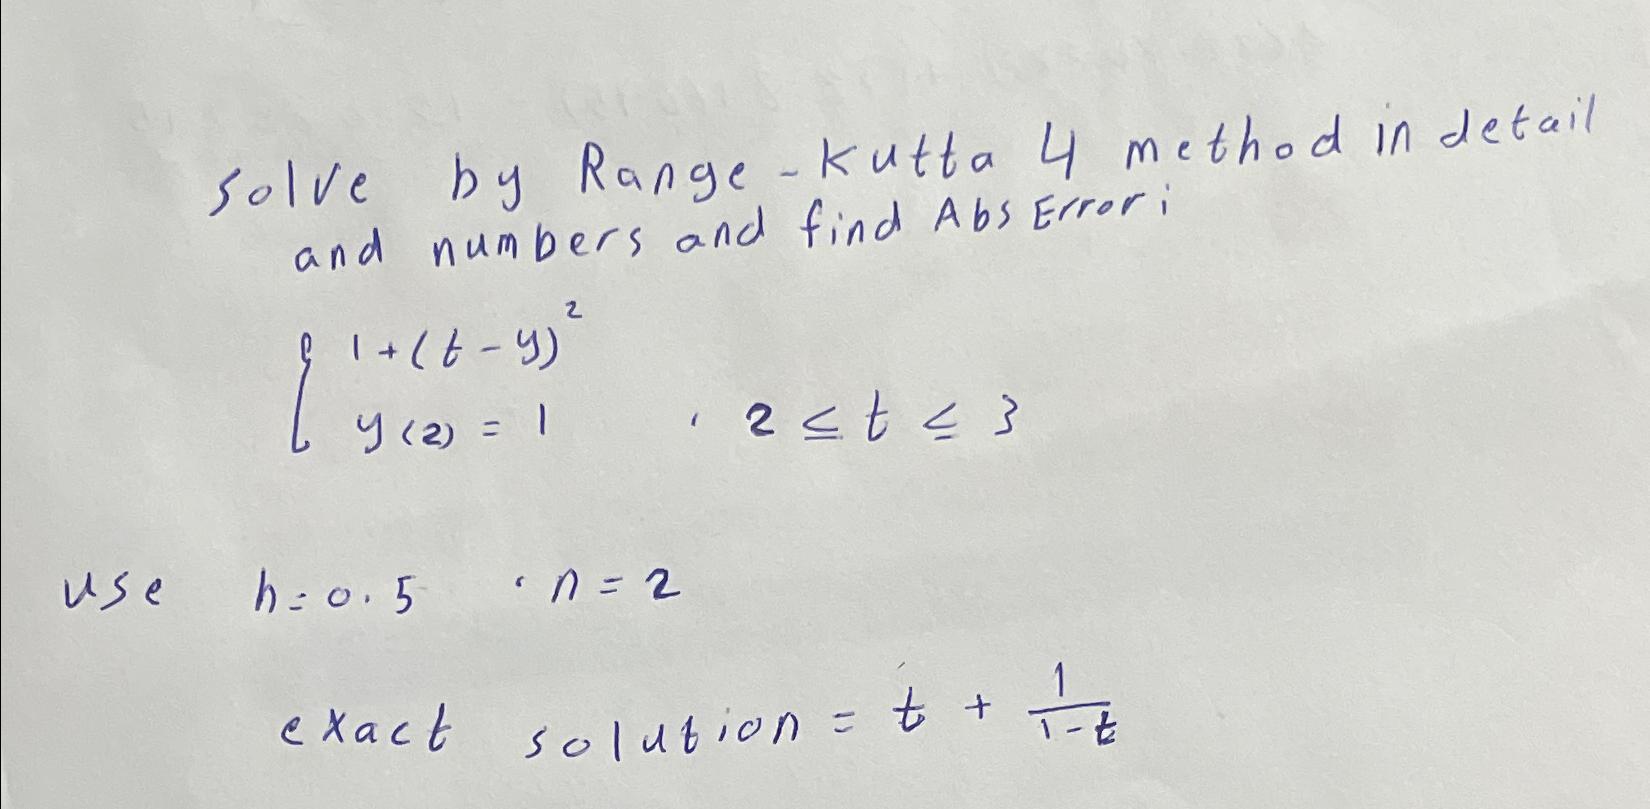 solve by Range - Kutta 4 method in detail
and numbers and find Abs Error:
{ 1 + (t - y)²
y(2) = 1 , 2 ≤ t ≤ 3
use h = 0.5 , n = 2
exact solution = t + 1/(1-t)